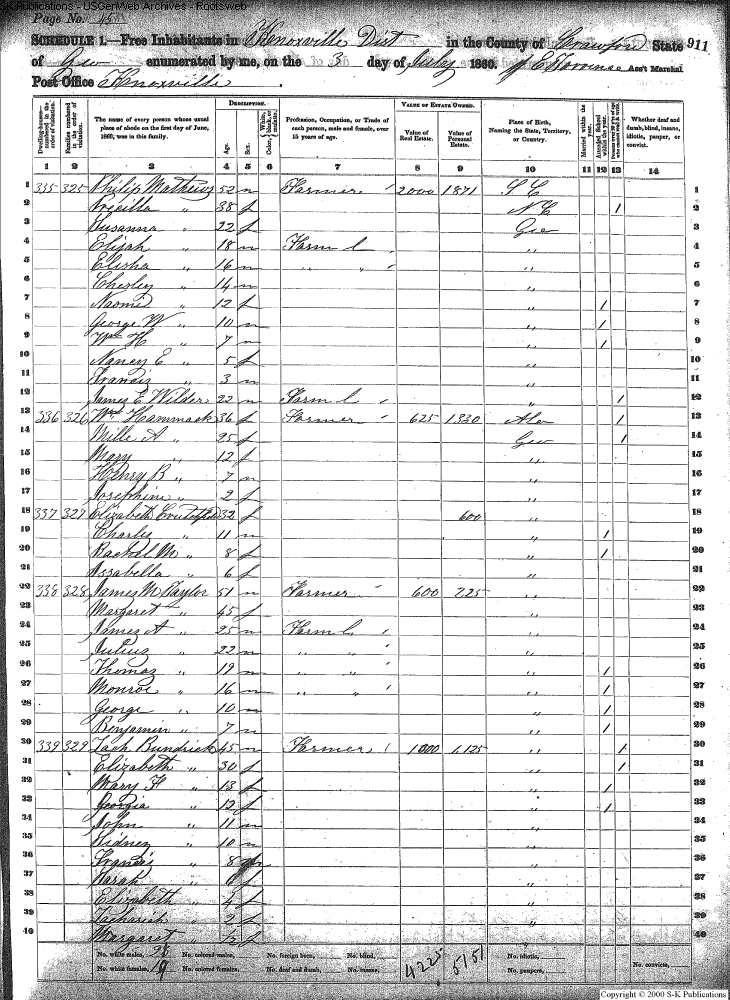 S-K Publications - USGenWeb Archives - Rootsweb
Page No. 45
SCHEDULE 1.—Free Inhabitants in Knoxville Dist in the County of Crawford State 911
of Geo enumerated by me, on the 3 day of July 1860. Ass't Marshal
Post Office Knoxville
Dwelling-houses—numbered in the order of visitation. Families numbered in the order of visitation. The name of every person whose usual place of abode on the first day of June, 1860, was in this family. DESCRIPTION. Age. Sex. Color, White, black, or mulatto. Profession, Occupation, or Trade of each person, male and female, over 15 years of age. VALUE OF ESTATE OWNED. Value of Real Estate. Value of Personal Estate. Place of Birth, Naming the State, Territory, or Country. Married within the year. Attended School within the year. Whether deaf and dumb, blind, insane, idiotic, pauper, or convict.
1 2 3 4 5 6 7 8 9 10 11 12 13 14
1 335 325 Philip Mathews 52 m Farmer 2000 1871 S C 1
2 Precilla " 38 f N C / 2
3 Susanna " 22 f Geo 3
4 Elijah " 18 m Farm L " 4
5 Elisha " 16 m " " " 5
6 Chesley " 14 m " 6
7 Naomi " 12 f " / 7
8 George W " 10 m " / 8
9 Wm H " 7 m " / 9
10 Nancy E " 5 f " 10
11 Francis " 3 m " 11
12 James E Wilder 22 m Farm L " / 12
13 336 326 Wm Hammack 36 f Farmer 625 1330 Ala / 13
14 Mille A " 25 f Geo / 14
15 Mary " 12 f " 15
16 Henry B " 7 m " 16
17 Josephine " 2 f " 17
18 337 327 Elizabeth 32 f 600 " 18
19 Charlie " 11 m " / 19
20 Rachel M " 8 f " / 20
21 Assabella " 6 f " 21
22 338 328 James M Taylor 51 m Farmer 600 225 " 22
23 Margaret " 45 f " 23
24 James A " 25 m Farm L " 24
25 Julius " 22 m " " " 25
26 Thomas " 19 m " " " / 26
27 Monroe " 16 m " " " / 27
28 George " 10 m " / 28
29 Benjamin " 7 m " / 29
30 339 329 Zach Bundrick 45 m Farmer 1000 1125 " / 30
31 Elizabeth " 30 f " / 31
32 Mary F " 13 f " / 32
33 Georgia " 12 f " / 33
34 John " 11 m " 34
35 Sidney " 10 m " 35
36 Francis " 8 " 36
37 Sarah " 6 f " 37
38 Elizabeth " 4 f " 38
39 Zachariah " 2 f " 39
40 Margaret " f " 40
No. white males, 28 No. colored males, No. foreign born, No. blind, 4225 5151 No. idiotic, No. convicts,
No. white females, 19 No. colored females, No. deaf and dumb, No. insane, No. paupers,
Copyright © 2000 S-K Publications